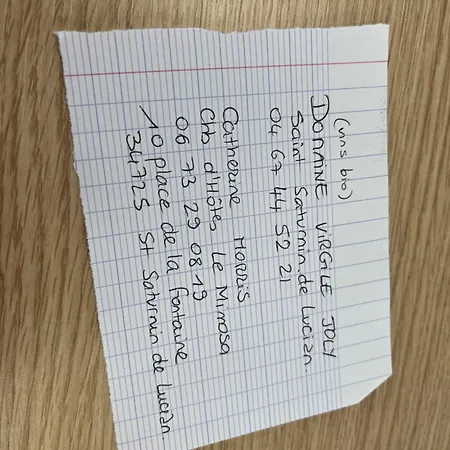 (vins bio)
DOMAINE VIRGILE JOLY
Saint Saturnin de Lucian.
04 67 44 52 21
Catherine MORRIS
Chb d'Hôtes Le Mimosa
06 73 29 08 19
10 place de la fontaine
34725 St Saturnin de Lucian.